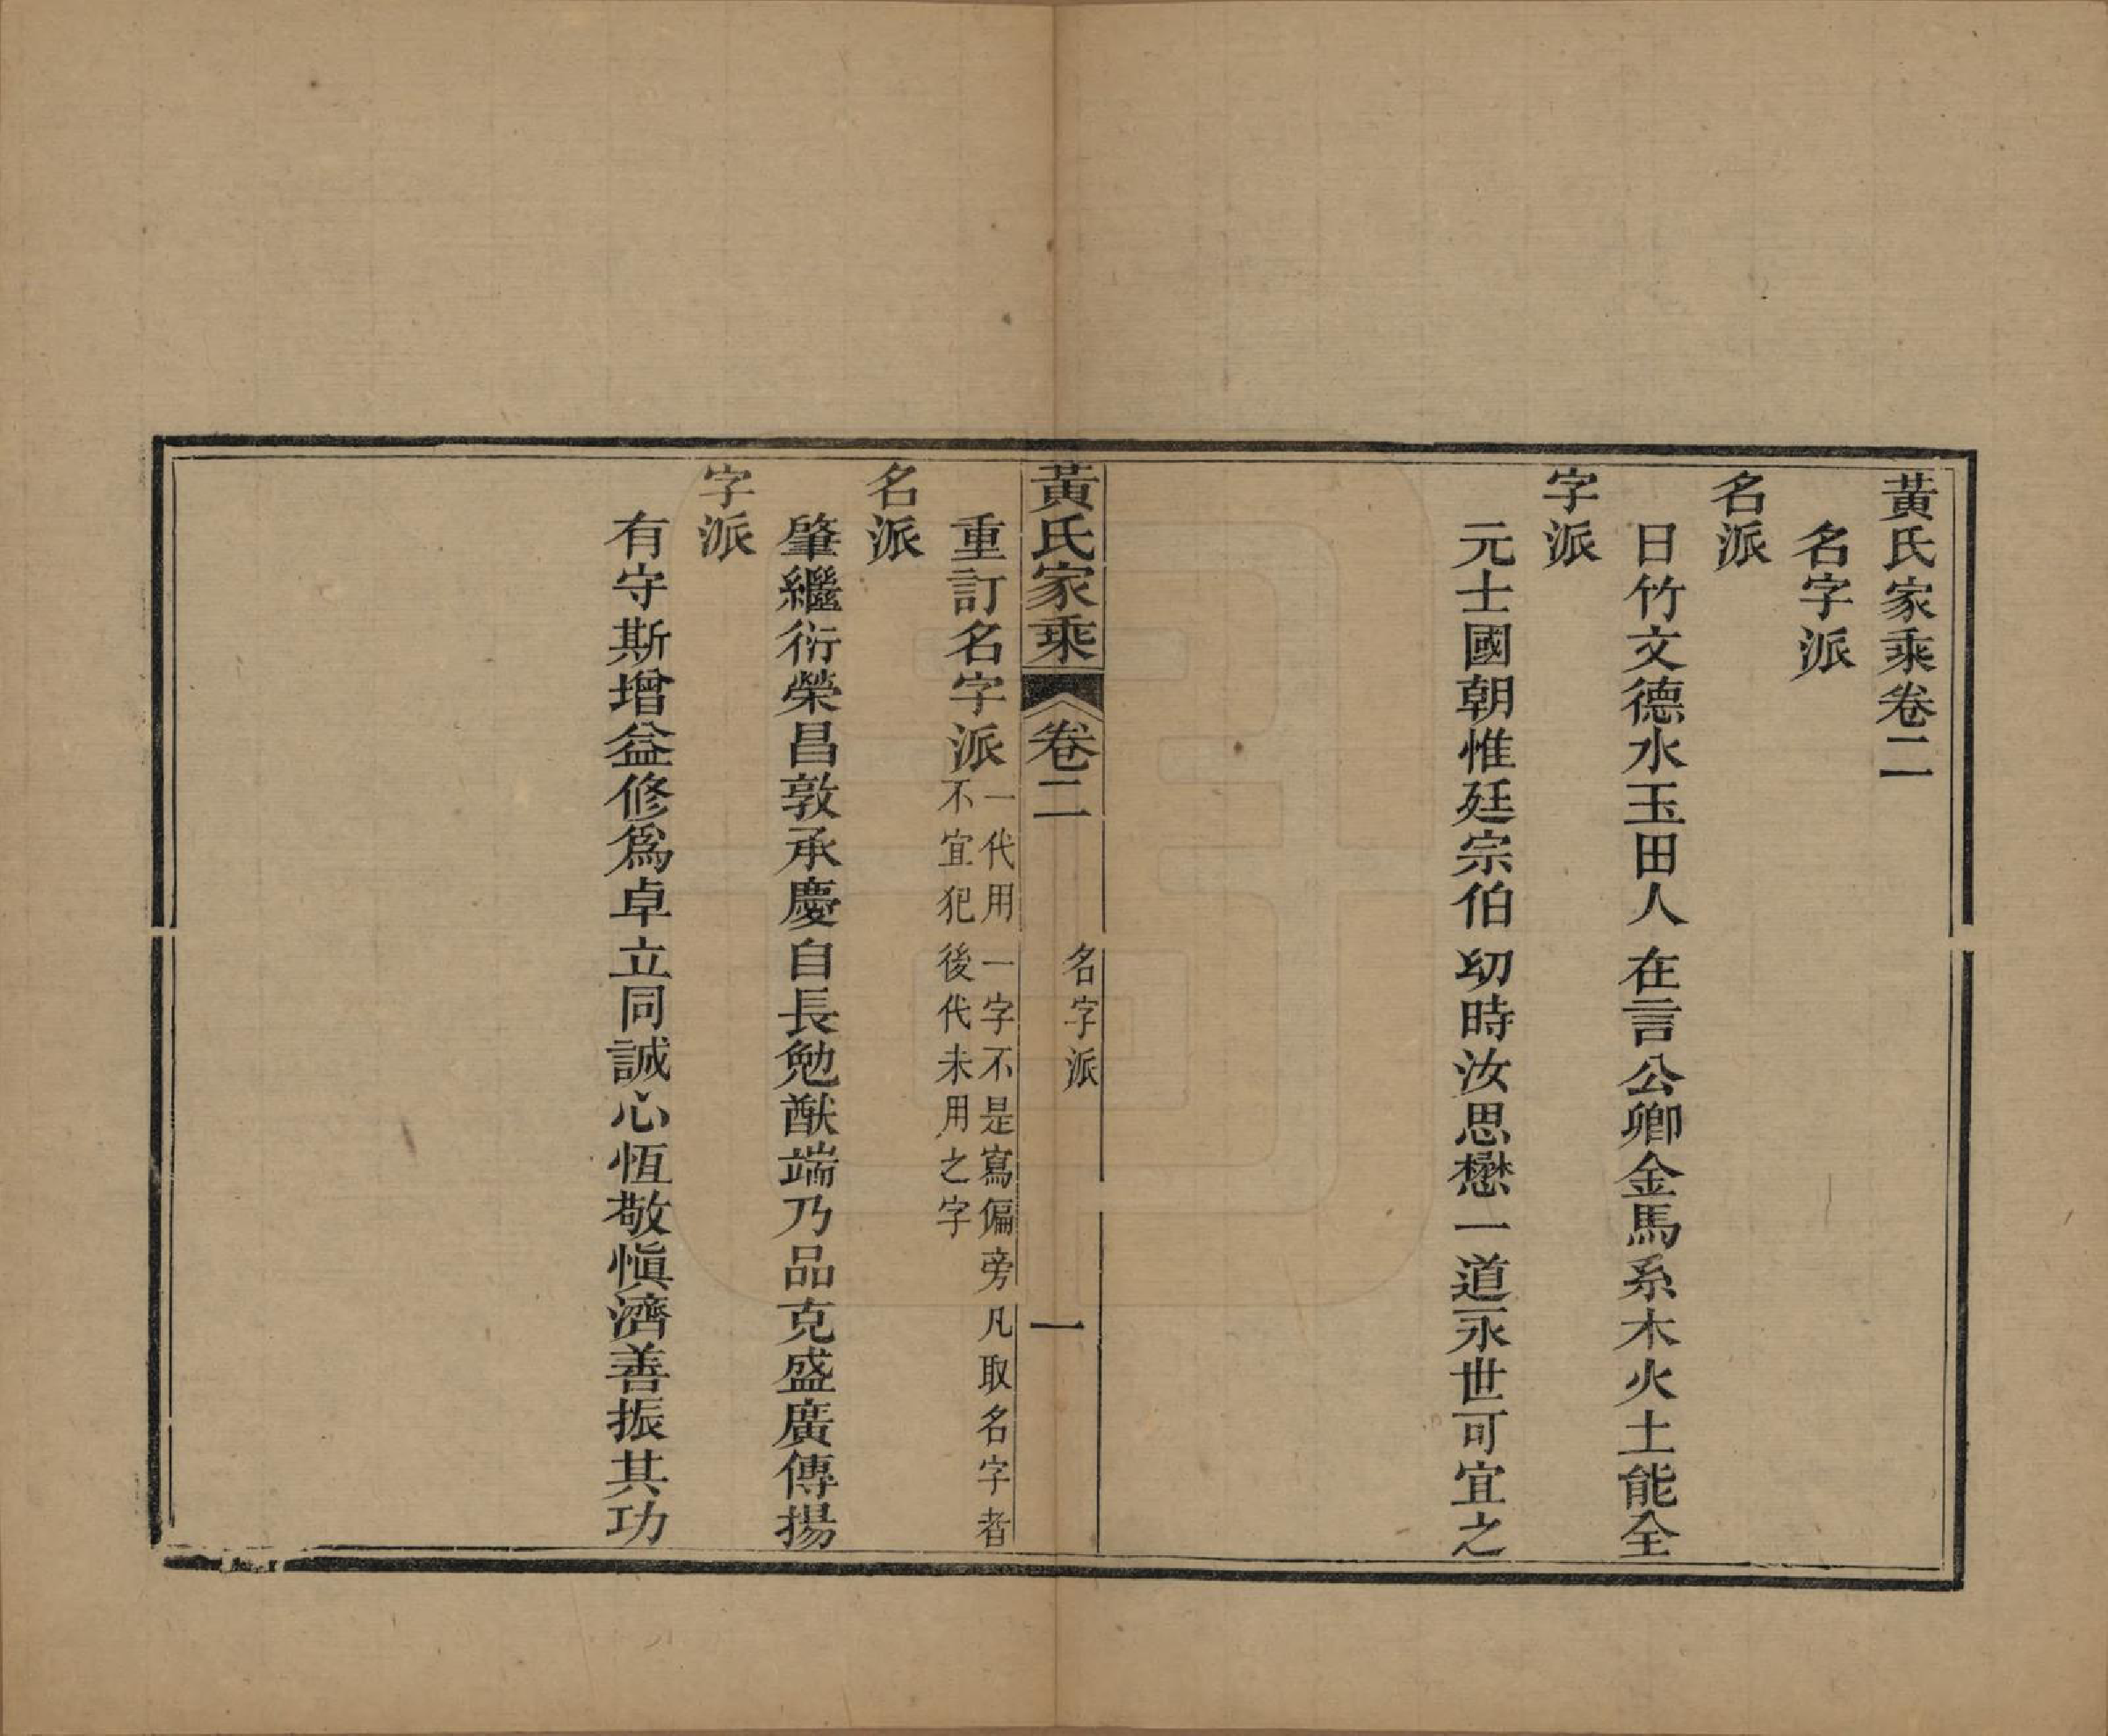 黃氏家乘卷二
名字派
名派
日竹文德水玉田人在言公卿金馬系木火土能全
字派
元士國朝惟廷宗伯㓜時汝思懋一道永世可宜之
黃氏家乘
卷二
名字派
一
重訂名字派
一代用一字不是寫偏旁凡取名字者
不宜犯後代未用之字
名派
肇繼衍榮昌敦承慶自長勉猷端乃品克盛廣傳揚
字派
有守斯增益修爲卓立同誠心恆敬愼濟善振其功